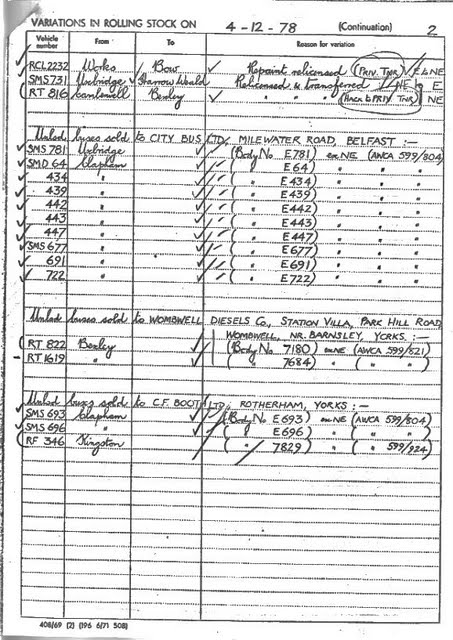 VARIATIONS IN ROLLING STOCK ON 4-12-78 (Continuation) 2
Vehicle number From To Reason for variation
RCL2232 Works Bow Repaint relicensed (PRIV. TNR) E & NE
SMS731 Uxbridge Harrow Weald Relicensed & transferred NE E
RT 816 Camberwell Bexley " " " (HACK & PRIV TNR) NE
Unlicd buses sold to CITY BUS LTD, MILEWATER ROAD, BELFAST :-
SMS 781 Uxbridge (Body No E781) ex NE (AWCA 599/804)
SMD 64 Clapham ( " E64) " " "
434 " ( " E434) " " "
439 " ( " E439) " " "
442 " ( " E442) " " "
443 " ( " E443) " " "
447 " ( " E447) " " "
SMS 677 " ( " E677) " " "
691 " ( " E691) " " "
722 " ( " E722) " " "
Unlicd buses sold to WOMBWELL DIESELS Co., STATION VILLA, PARK HILL ROAD
WOMBWELL, NR. BARNSLEY, YORKS. :-
RT 822 Bexley (Body No 7180) ex NE (AWCA 599/821)
RT 1619 " ( " 7684) " " "
Unlicd buses sold to C.F. BOOTH LTD., ROTHERHAM, YORKS :-
SMS 693 Clapham (Body No E693) ex NE (AWCA 599/804)
SMS 696 " ( " E696) " " "
RF 346 Kingston ( " 7829) " ( " 599/924)
408/69 (2) (196 6/71 508)